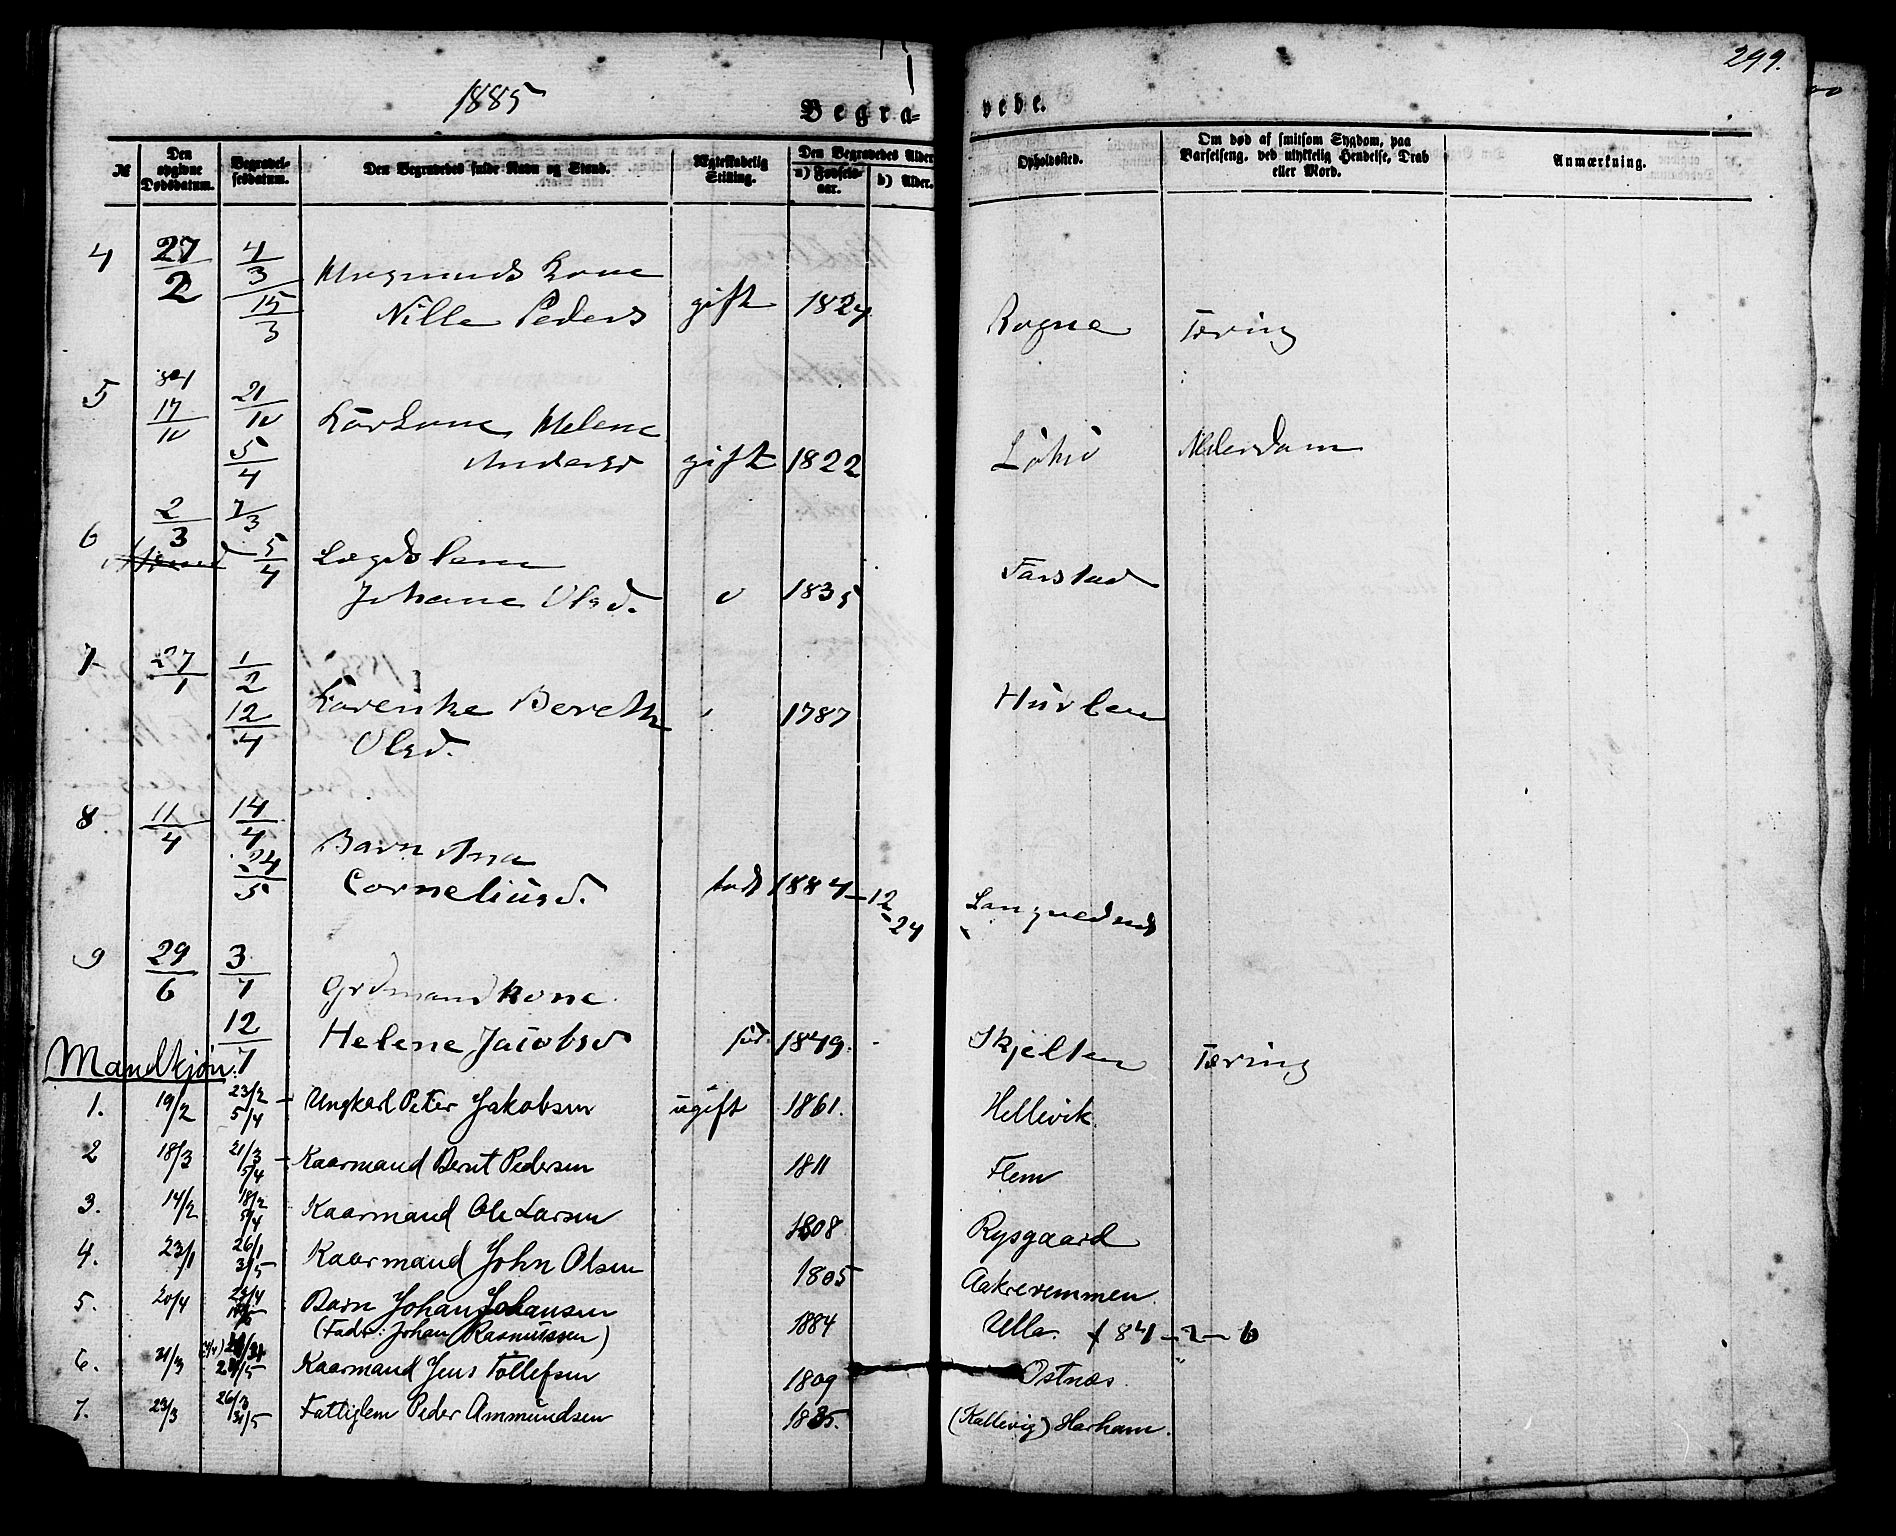 299.
1885
Begra- vede.
№ Den opgivne Dødsdatum. Begravel-sesdatum. Den Begravedes fulde Navn og Stand. Ægteskabelig Stilling. Den Begravedes Alder a) Fødsels-aar. b) Alder. Opholdssted. Om død af smitsom Sygdom, paa Barselseng, ved ulykkelig Hendelse, Drab eller Mord. Anmærkning.
4 27/2 4/3 15/3 Kone
Nille Peders gift 1824 Rogne Tæring
5 17/10 21/10 5/4 Kone Helene
Andersd gift 1822 Alderdom
6 2/3 7/3 5/4 Lægdslem
Johane Olsd. 1835 Farstad
7 27/1 1/2 12/4 Bereth
Olsd. 1787 Hurlen
8 11/4 14/4 24/5 Barn Ana
Corneliusd. 1884-12-24
9 29/6 3/7 12/7 Grdmandkone
Helene Jacobsd 1849. Skjelten Tæring
Mandkjøn.
1. 19/2 23/2 5/4 Ungkarl Peter Jakobsen ugift 1861. Hellevik
2 18/3 21/3 5/4 Kaarmand Bernt Pedersen 1811 Flem
3. 14/2 18/2 5/4 Kaarmand Ole Larsen 1808 Rysgaard
4. 23/1 26/1 3/5 Kaarmand John Olsen 1805 Aakreremmen
5. 20/4 Barn Johan Johansen
(Fader: Johan Rasmussen) 1884 Ulla
6. 21/3 Kaarmand Jens Tollefsen 1809 Østnæs.
7. 23/3 26/3 31/5 Fattiglem Peder Ammundsen 1835. (Kallevig) Harham.